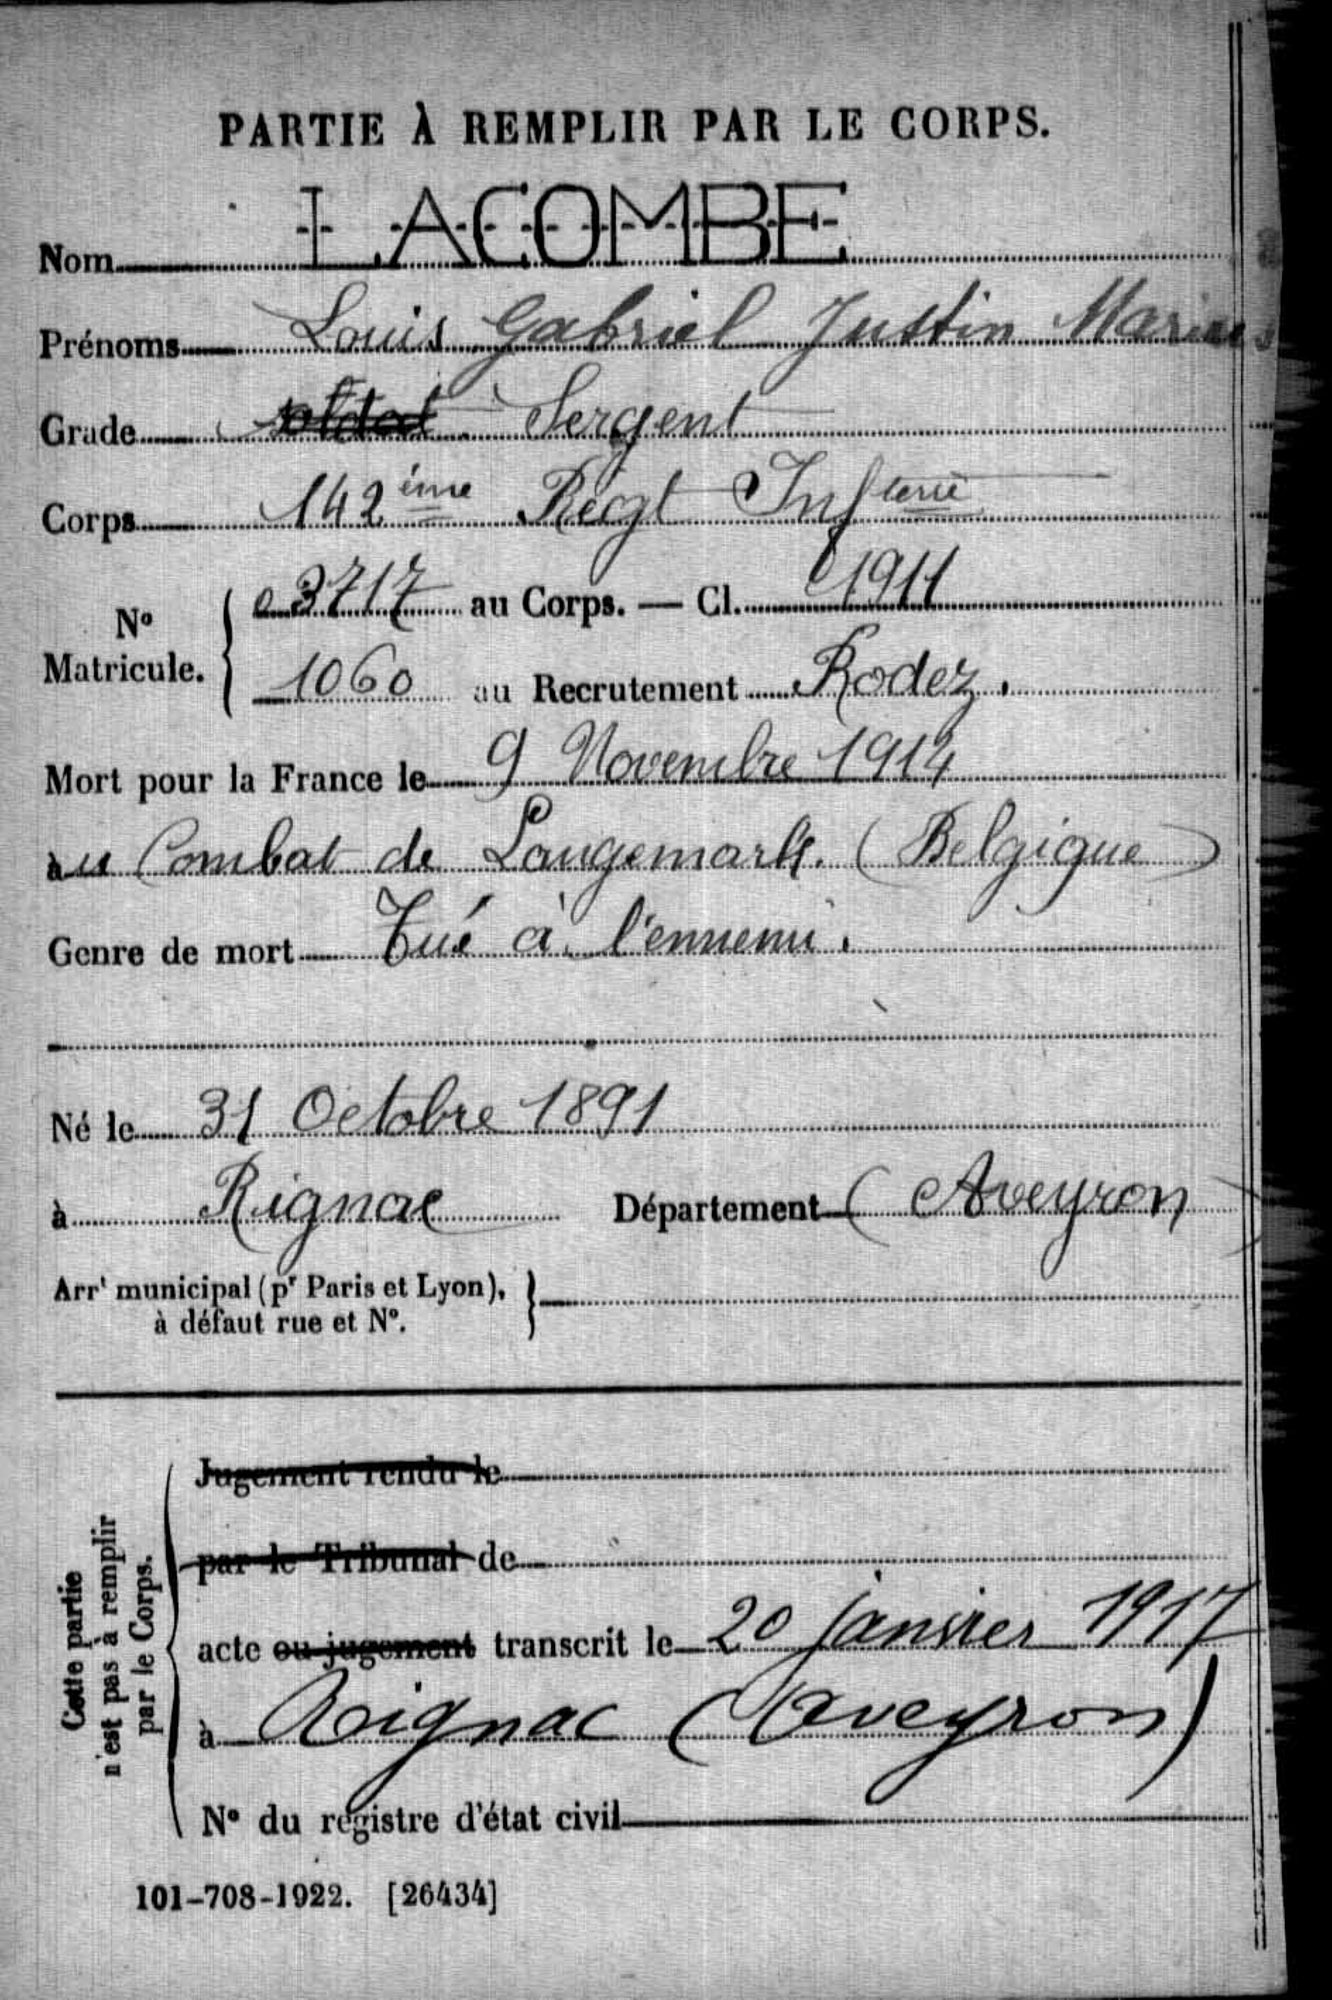 PARTIE À REMPLIR PAR LE CORPS.
Nom LACOMBE
Prénoms Louis Gabriel Justin Marius
Grade soldat Sergent
Corps 142ème Régt Infterie
No Matricule. 03717 au Corps. — Cl. 1911
1060 au Recrutement Rodez.
Mort pour la France le 9 Novembre 1914
au Combat de Langemark. (Belgique)
Genre de mort Tué à l'ennemi.
Né le 31 Octobre 1891
à Rignac Département (Aveyron)
Arrt municipal (pr Paris et Lyon),
à défaut rue et No.
Cette partie
n'est pas à remplir
par le Corps.
Jugement rendu le
par le Tribunal de
acte ou jugement transcrit le 20 janvier 1917
à Rignac (Aveyron)
No du registre d'état civil
101-708-1922. [26434]